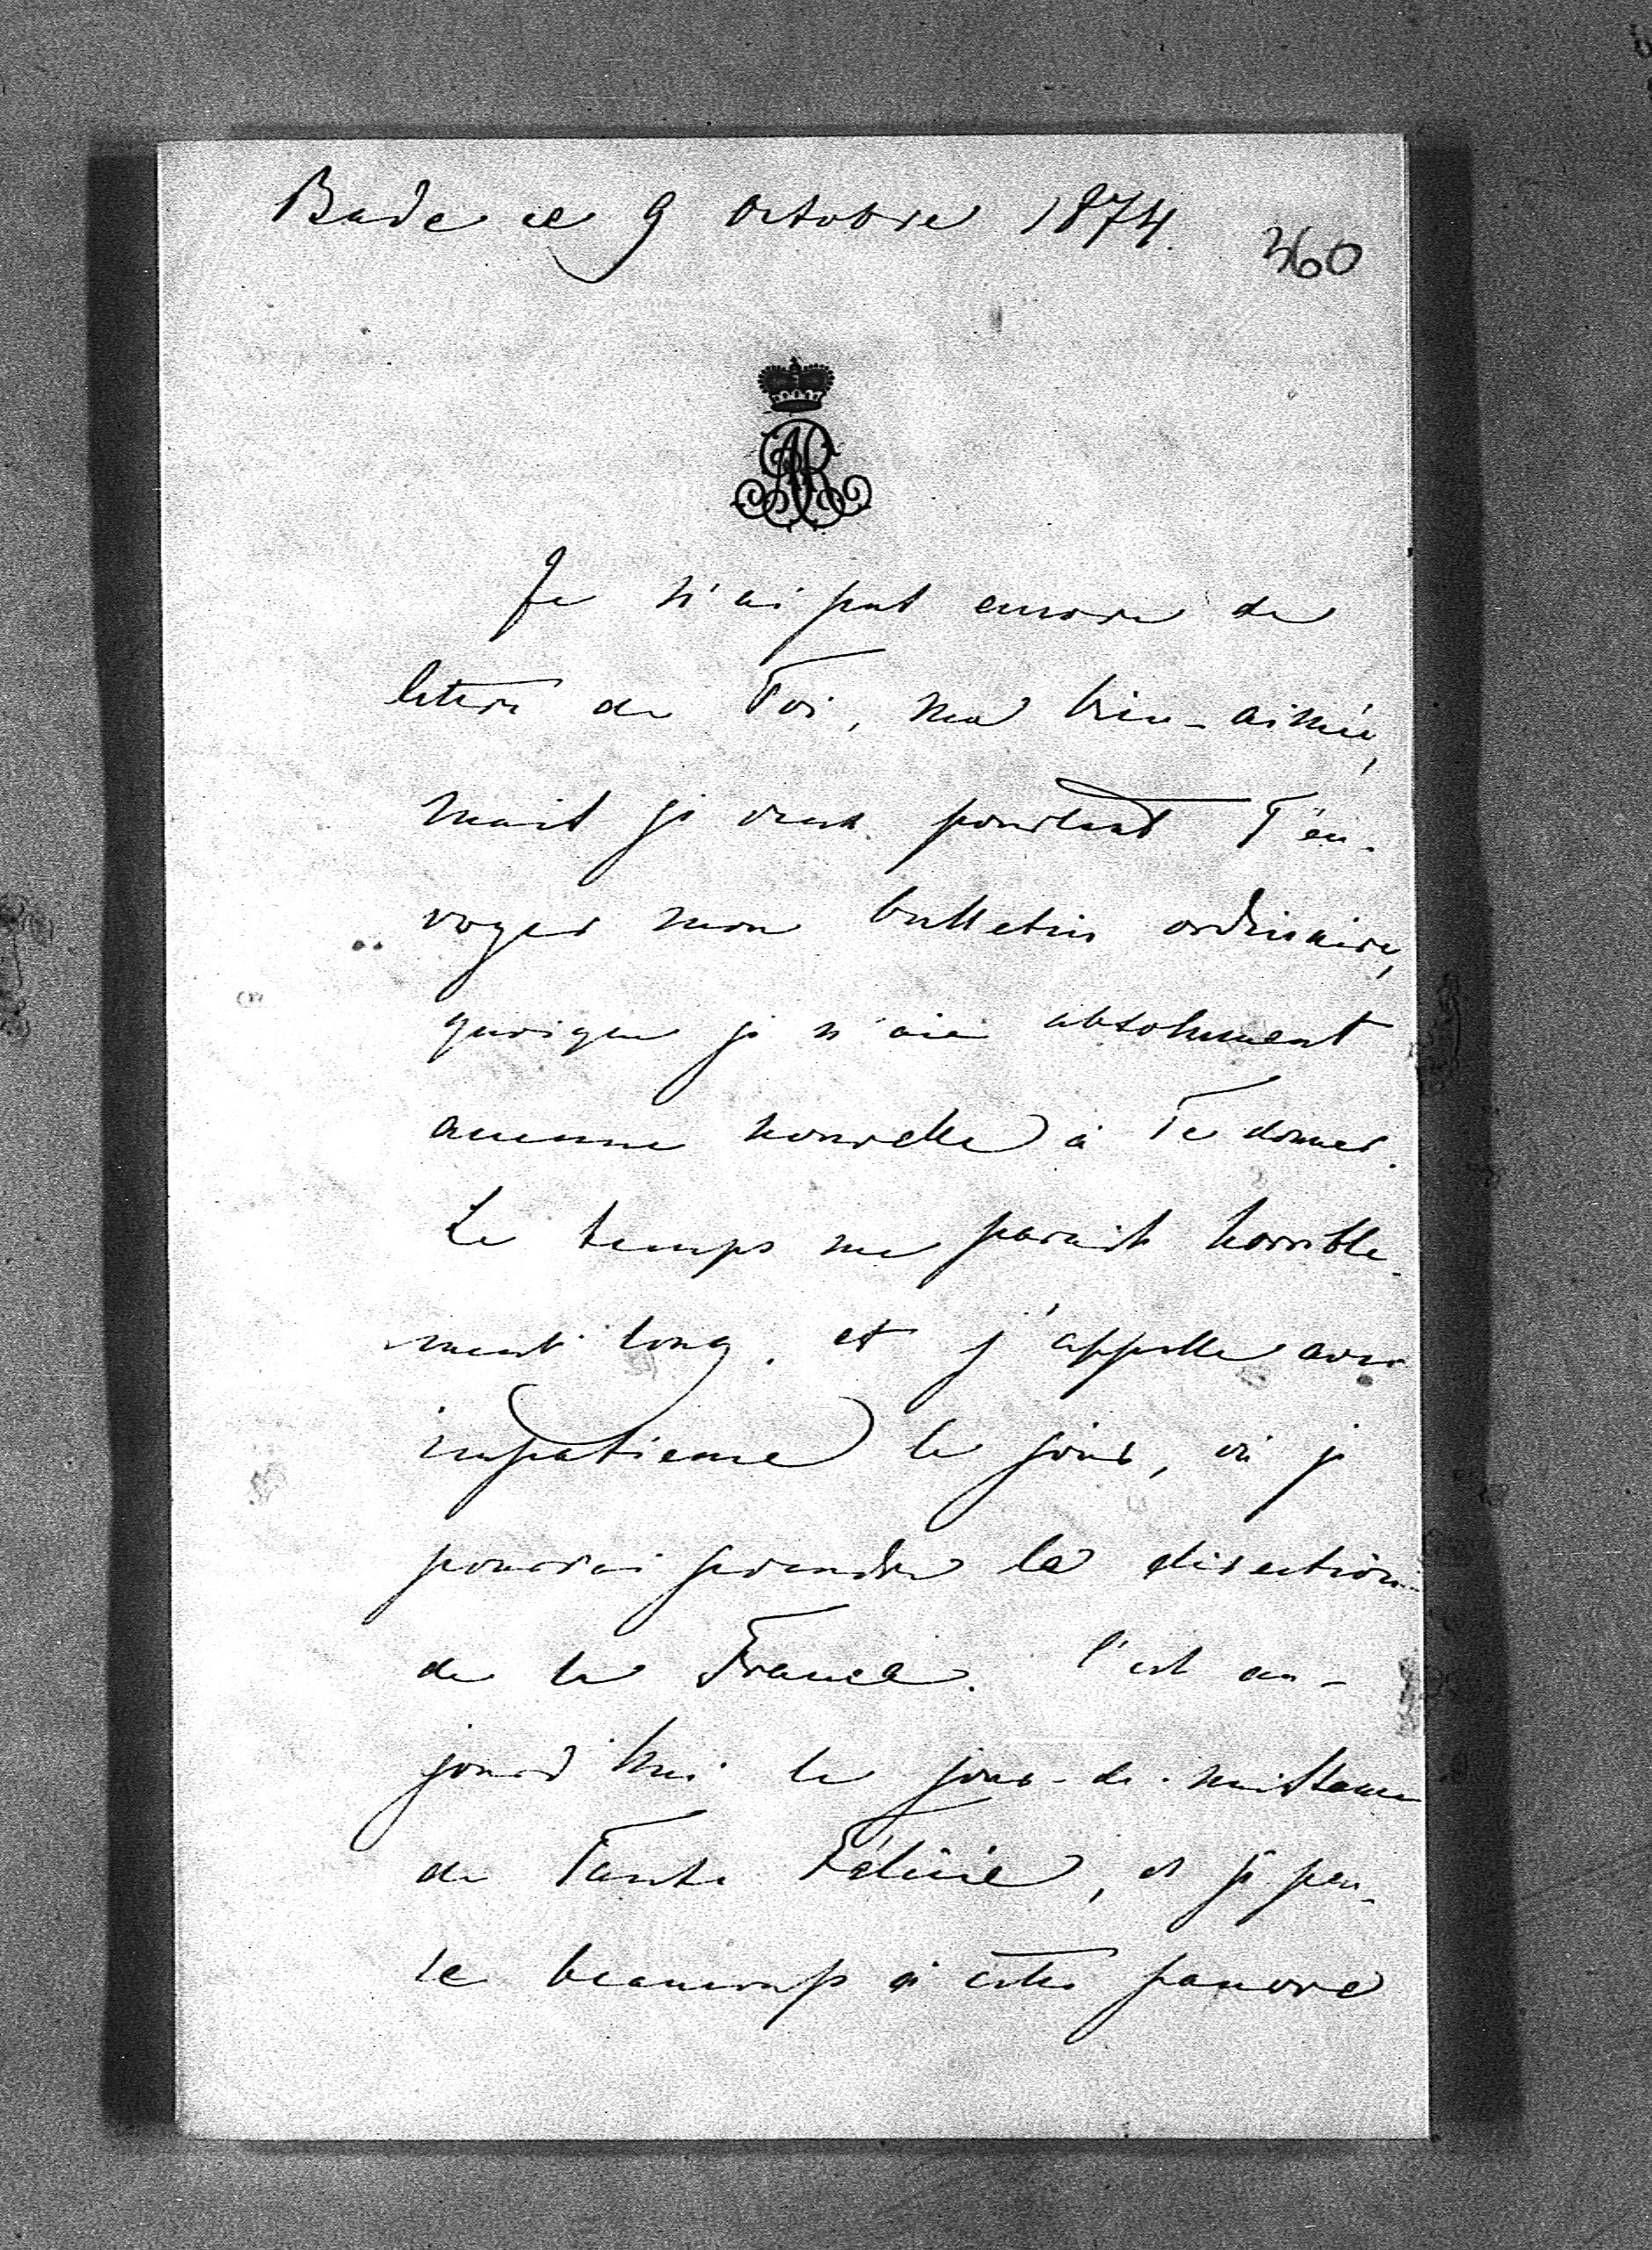 Bade ce 9 Octobre 1874.
360
AR
Je n'ai pas encore de
lettre de Toi, ma bien-aimée,
mais je veux pourtant T'en-
voyer mon bulletin ordinaire,
quoique je n'aie absolument
aucune nouvelle à Te donner.
Le temps me parait horrible-
ment long, et j'appelle avec
impatience le jour, où je
pourrai prendre la direction
de la France. C'est au-
jourd'hui le jour-de-naissance
de Tante Félicie, et je pen-
se beaucoup à cette pauvre